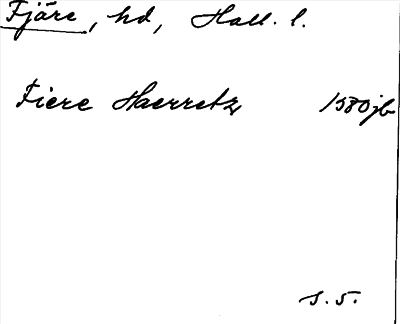 Fjäre, hd, Hall. l.
Fiere Haerretz 1580 jb
s. 5.